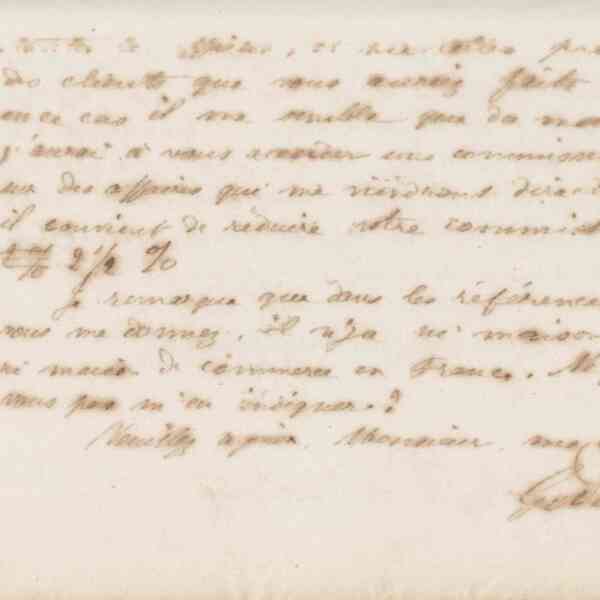 des clients que vous auriez faits
en ce cas il me semble que du mo
j'aurai à vous accorder une commission
sur des affaires qui me viendront direc
il convient de réduire votre commis
2 1/2 %
Je remarque que dans les référence
vous me donnez, il n'y a ni maison
ni maison de commerce en France. N
vous pas m'en indiquer ?
Veuillez agréer, Monsieur, me